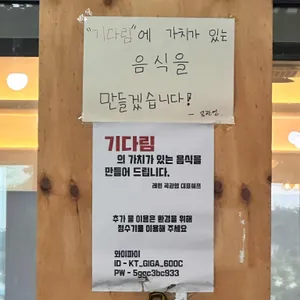 "기다림"에 가치가 있는
음식을
만들겠습니다!
기다림
의 가치가 있는 음식을
만들어 드립니다.
대표쉐프
추가 물 이용은 환경을 위해
정수기를 이용해 주세요
와이파이
ID - KT_GIGA_600C
PW - 5ggc3bc933